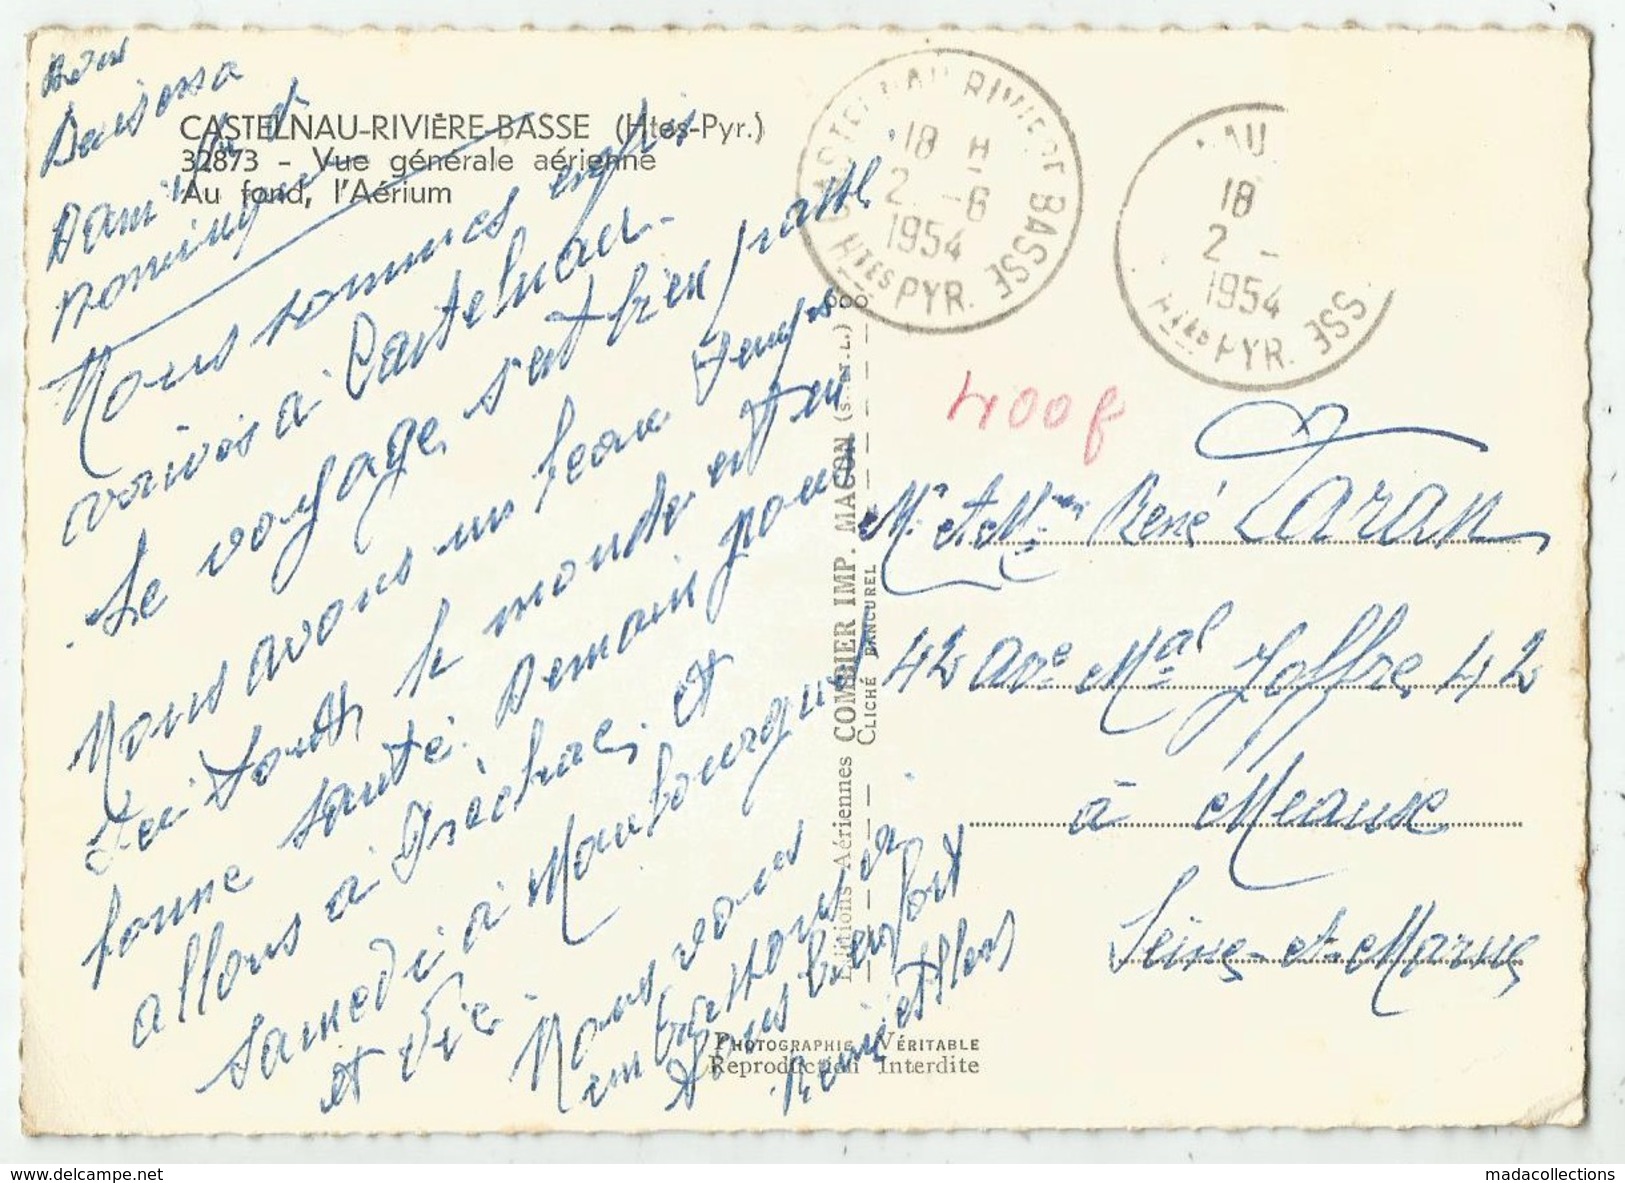 CASTELNAU-RIVIÈRE-BASSE (Htes-Pyr.)
32873 - Vue générale aérienne
Au fond, l'Aérium
Nous sommes enfin
arrivés à Castelnau.
Le voyage s'est bien passé
Nous avons un beau temps
Ici tout le monde est en
bonne santé. Demain nous
allons à et
samedi à Maubourguet
et Vic.
Nous vous
embrassons
bien fort
CASTELNAU RIVIERE BASSE
18 H
2 -6
1954
HTES PYR.
AU
18
2 -
1954
SSE
Htes PYR.
400f
Mr et Mme René Zaran
42 Ave Mal Joffre 42
à Meaux
Seine-et-Marne
Editions Aériennes COMBIER IMP. MACON (S.-et-L.)
CLICHÉ BANCUREL
PHOTOGRAPHIE VÉRITABLE
Reproduction Interdite
www.delcampe.net
madacollections